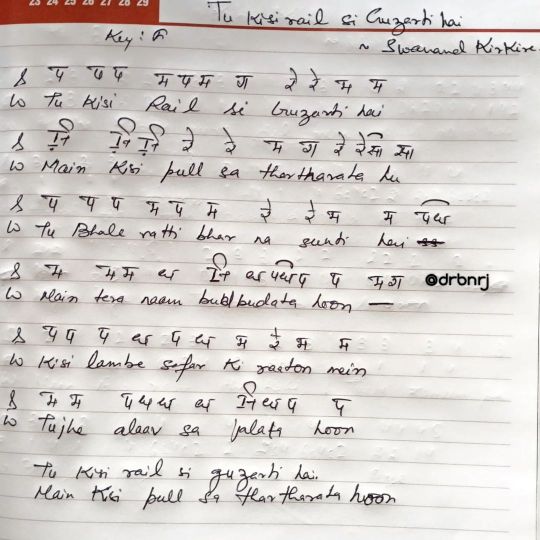 23 24 25 26 27 28 29
Tu Kisi rail si Guzarti hai
Key: F
~ Swanand Kirkire
S प पप मपम ग रे रे म म
W Tu Kisi Rail si Guzarti hai
S नि निनि रे रे म ग रे रेसा सा
W Main Kisi pull sa thartharata hu
S प प प म प म रे रे म म पध
W Tu Bhale ratti bhar na sunti hai
S म म म ध नि ध पधप प मग @drbnrj
W Main tera naam budbudata hoon —
S प प प ध प ध म रे म म
W Kisi lambe safar Ki raaton mein
S म म प ध ध ध निधप प
W Tujhe alaav sa jalata hoon
Tu Kisi rail si guzarti hai.
Main Kisi pull sa thartharata hoon